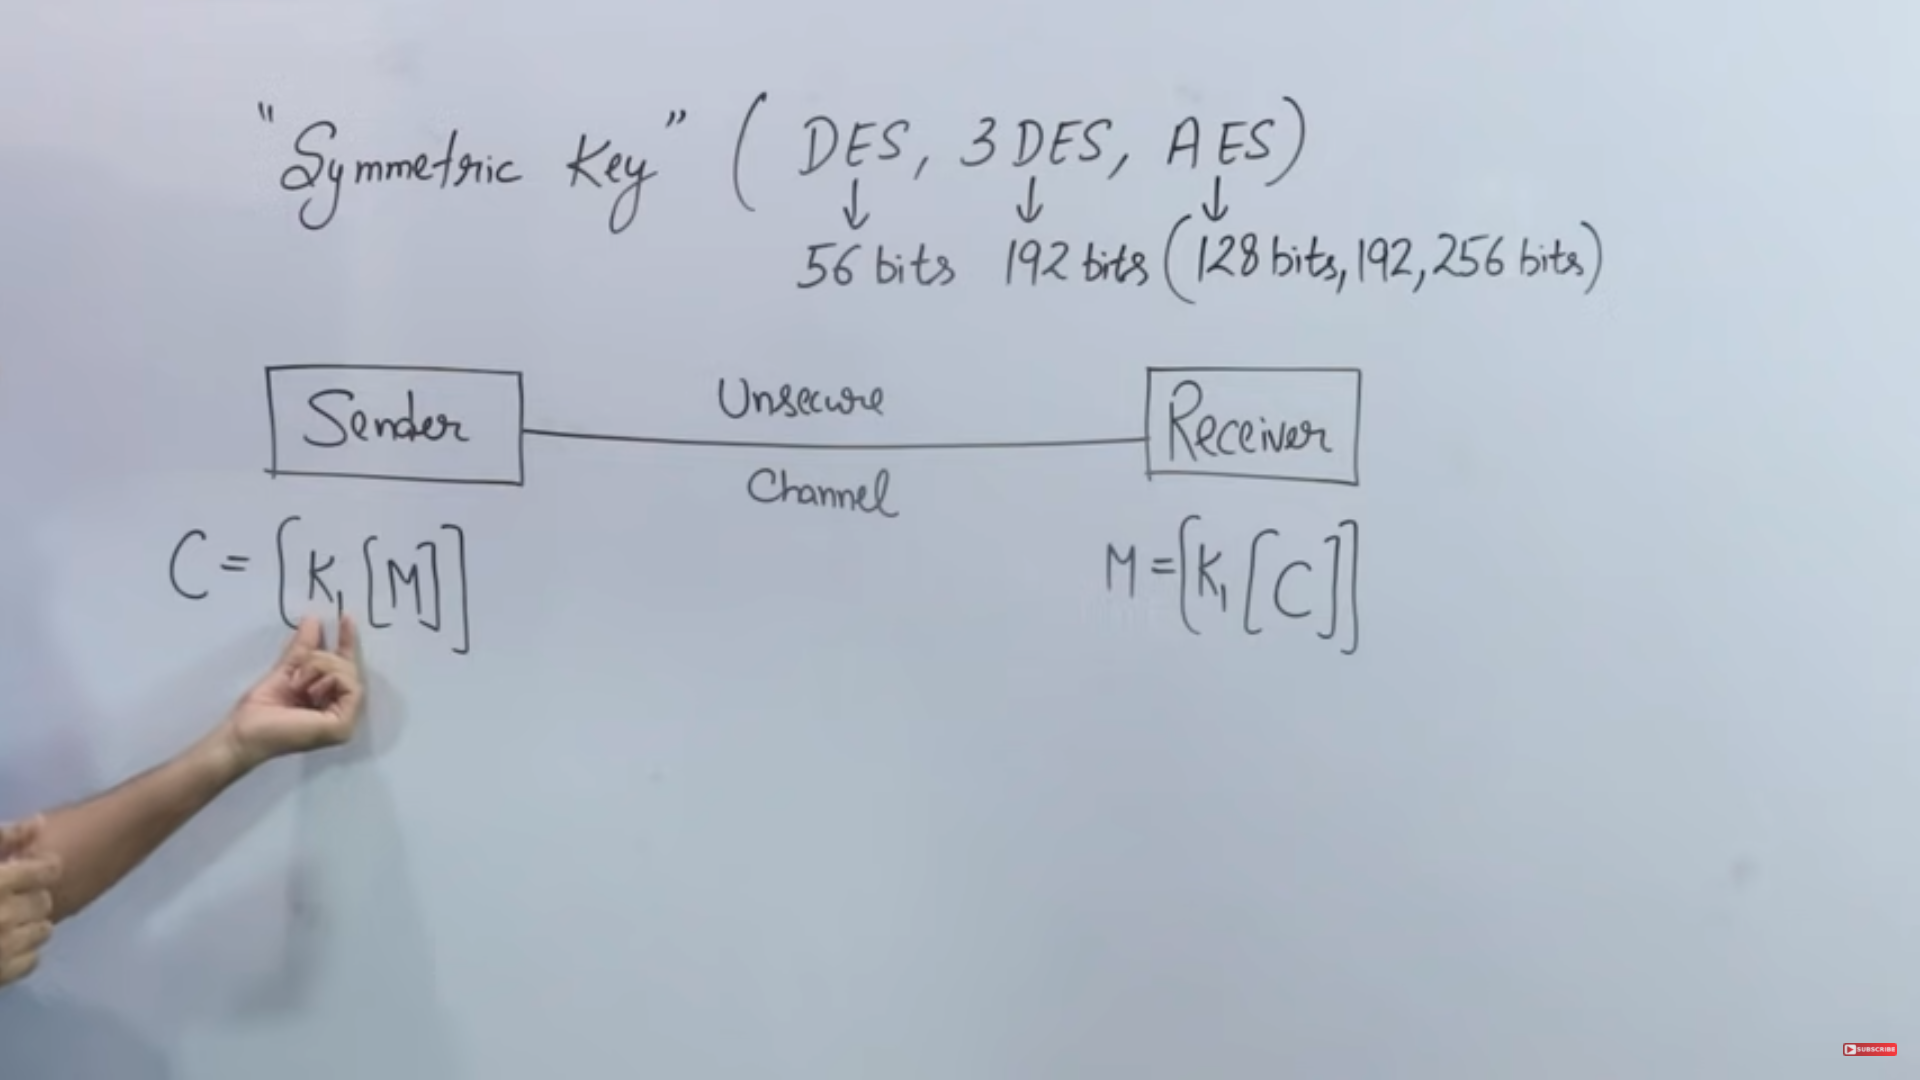 "Symmetric Key" ( DES, 3DES, AES)
↓ ↓ ↓
56 bits 192 bits (128 bits, 192, 256 bits)
Sender Unsecure Receiver
Channel
C = [K₁[M]] M = [K₁[C]]
SUBSCRIBE